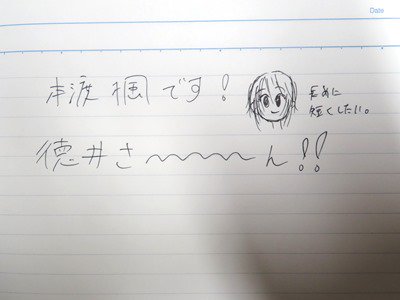 Date
本渡 楓 です！
毛めに
短くしたい。
徳井さ〜〜〜〜ん！！